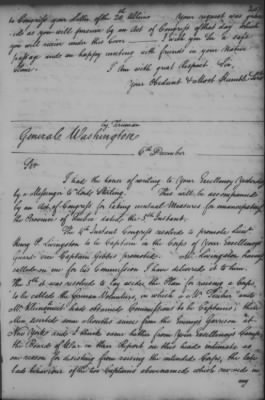 to Congress your Letter of the 20th Ultimo. Your request was granted
as you will perceive by an Act of Congress of that day which
you will receive under this Cover. I wish you Sir a safe
passage and an happy meeting with friends in your Native
Clime.
I am with great Respect Sir,
Your Obedient & Most Humble Serv
by Perriman
Generale Washington
6th December
Sir
I had the honor of writing to Your Excellency Yesterday
by a Messenger to Lord Stirling. This will be accompanied
by an Act of Congress for taking eventual Measures for emancipating
the Province of Quebec dated the 5th Instant.
The 4th Instant Congress resolved to promote Lieut
Henry P. Livingston to be Captain in the Corps of Your Excellencys
Guard vice Captain Gibbs promoted. Mr. Livingston having
called on me for his Commission I have delivered it to him.
The 5th it was resolved to lay aside the Plan for raising a Corps
to be called the German Volunteers, in which a Mr. Führer and
Mr. Kleinsmit had obtained Commissions to be Captains; these
Men deserted some Months since from the Enemys Garrison at
New York and I think came hither from Your Excellencys Camp,
the Board of War in their Report on this head intimate as
one reason for desisting from raising the intended Corps, the
bad behaviour of the two Captains abovenamed which
any